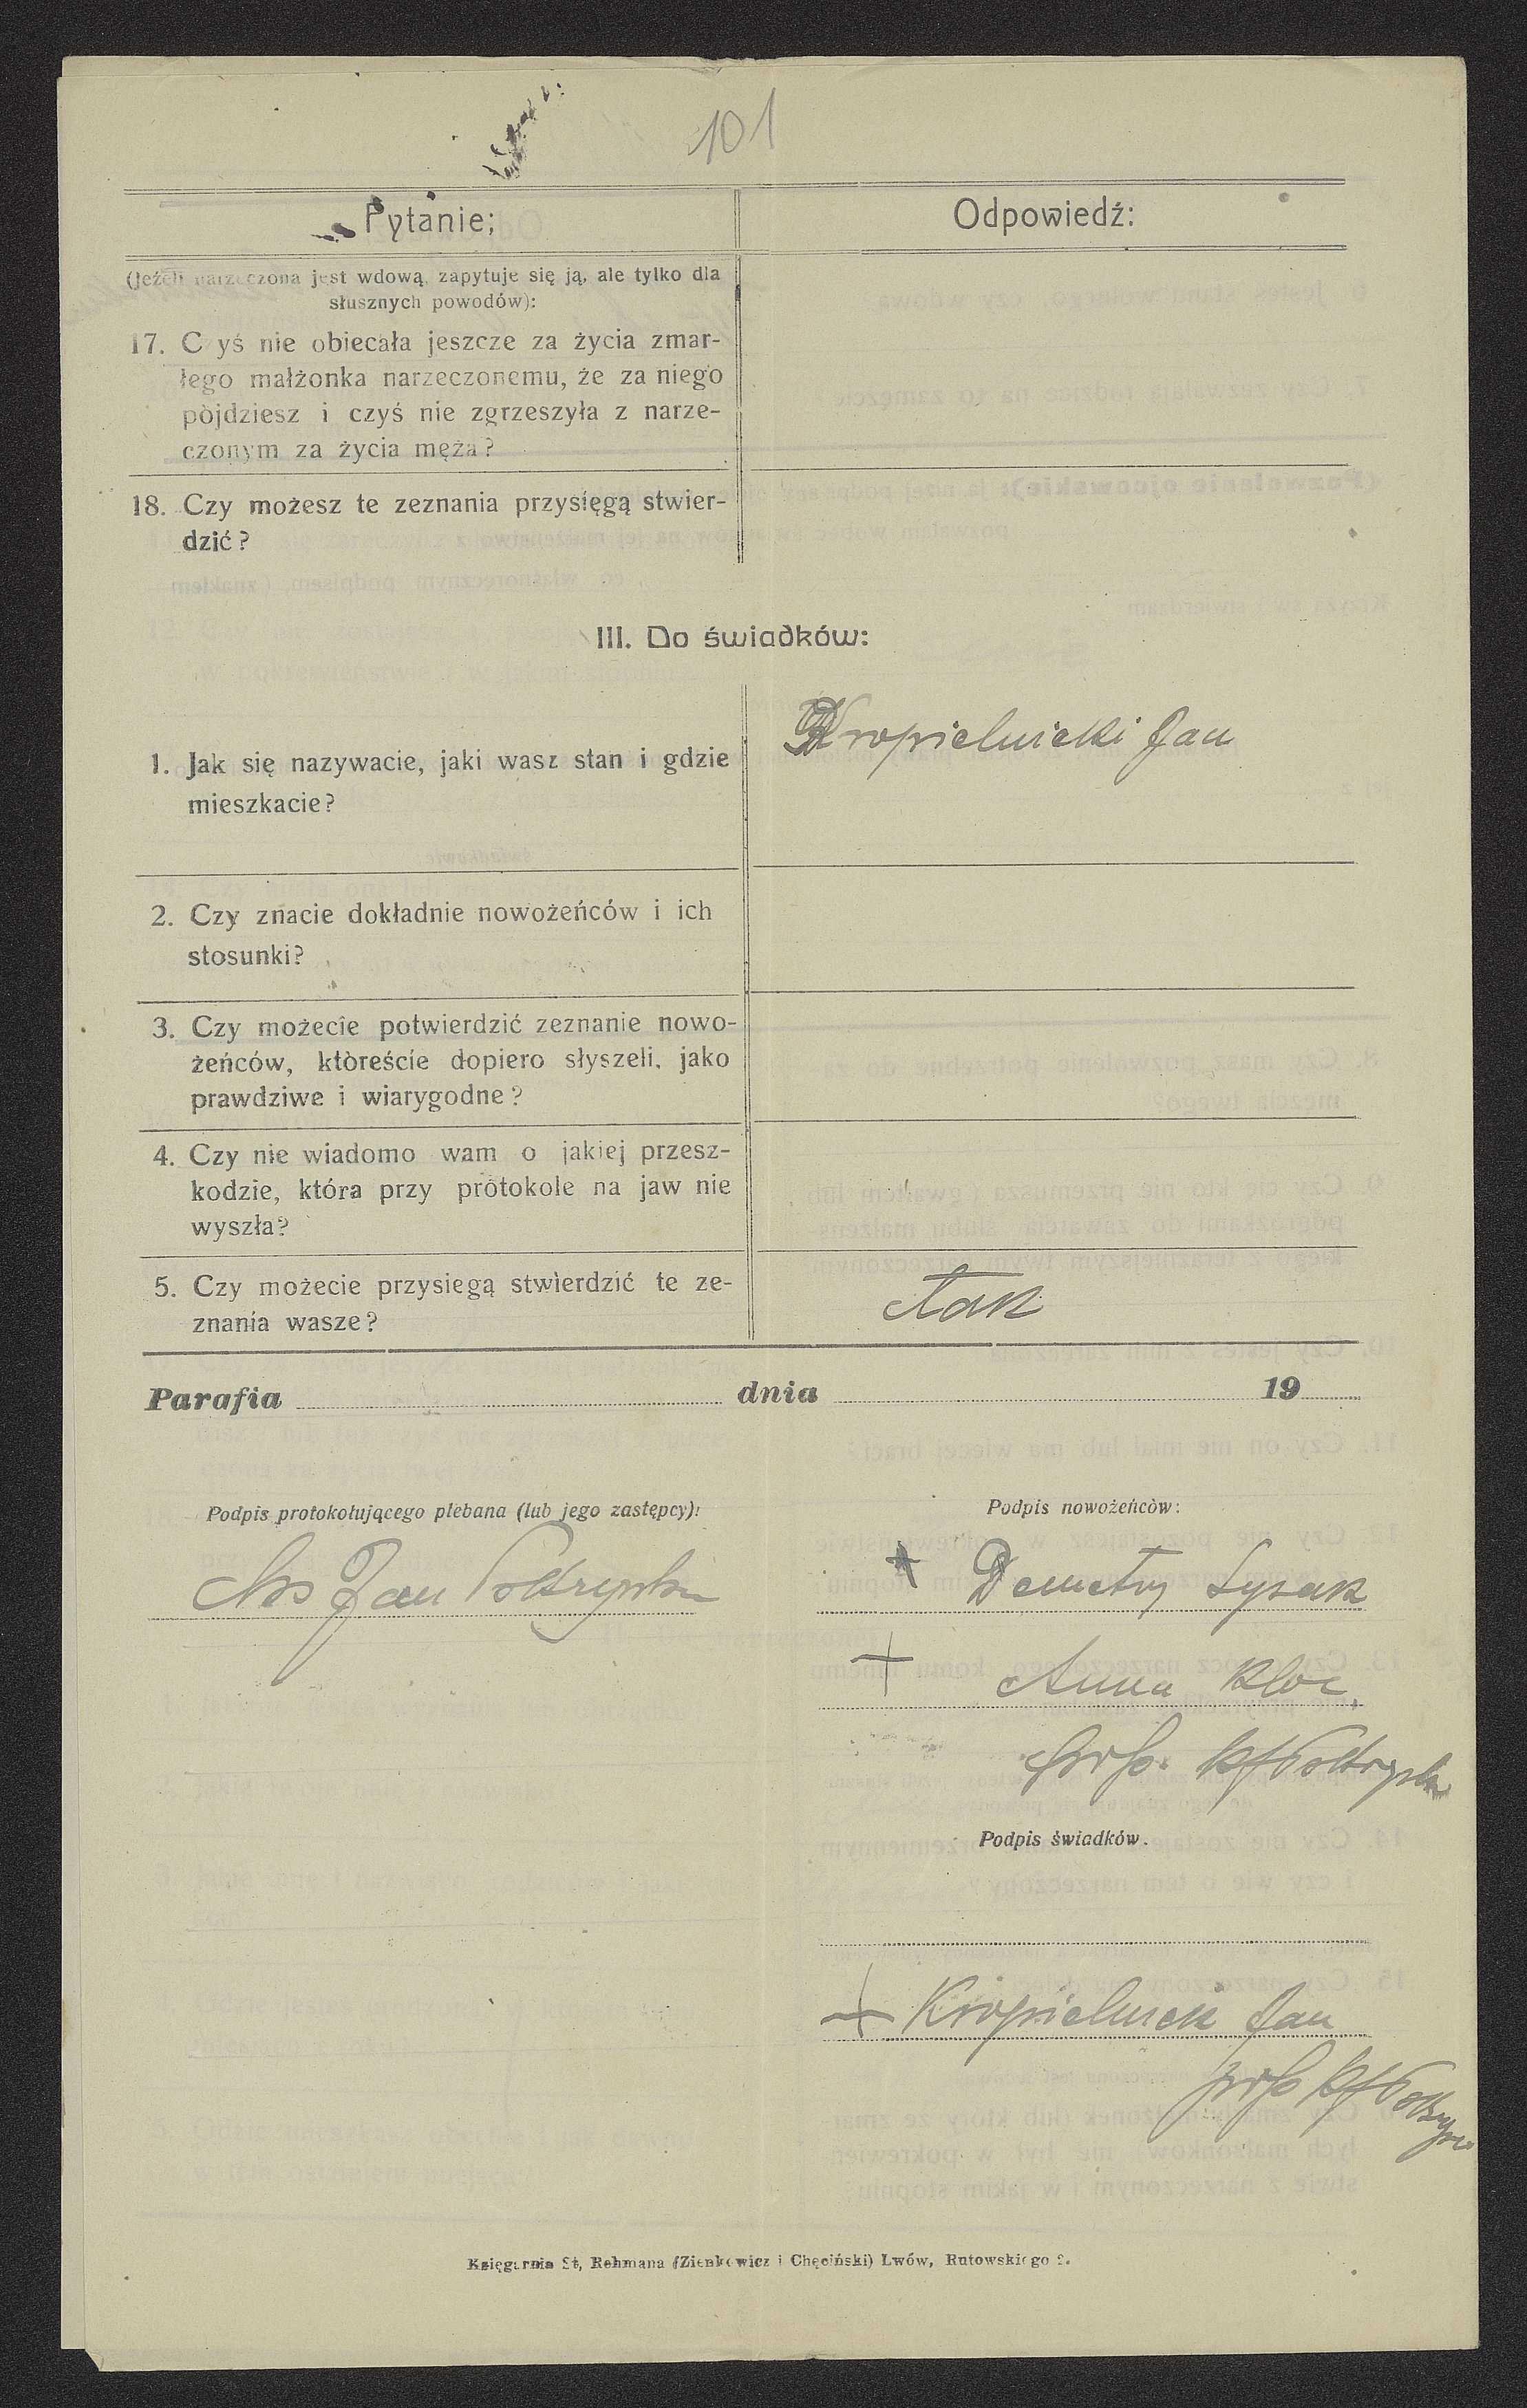 101
Pytanie;
Odpowiedź:
(Jeżeli narzeczona jest wdową, zapytuje się ją, ale tylko dla
słusznych powodów):
17. C yś nie obiecała jeszcze za życia zmar-
łego małżonka narzeczonemu, że za niego
pòjdziesz i czyś nie zgrzeszyła z narze-
czonym za życia męża?
18. Czy możesz te zeznania przysięgą stwier-
dzić?
III. Do świadków:
1. Jak się nazywacie, jaki wasz stan i gdzie
mieszkacie?
Kropielnicki Jan
2. Czy znacie dokładnie nowożeńców i ich
stosunki?
3. Czy możecie potwierdzić zeznanie nowo-
żeńców, któreście dopiero słyszeli, jako
prawdziwe i wiarygodne?
4. Czy nie wiadomo wam o jakiej przesz-
kodzie, która przy protokole na jaw nie
wyszła?
5. Czy możecie przysiegą stwierdzić te ze-
znania wasze?
Tak
Parafia dnia 19
Podpis protokołującego plebana (lub jego zastępcy):
Podpis nowożeńców:
Jan
+ Demetry Lysak
+ Anna Kloc.
Podpis świadków.
+ Kropielnicki Jan
Księgarnia St, Rehmana (Zienkowicz i Chęciński) Lwów, Rutowskiego 2.